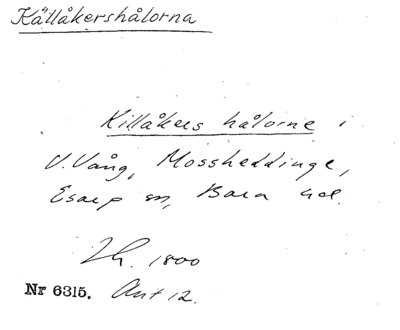 Källåkershålorna
Killåkers hålorne i
V. Vång, Mossheddinge,
Esarp sn, Bara hd.
Lh. 1800
Nr 6315. Akt 12.